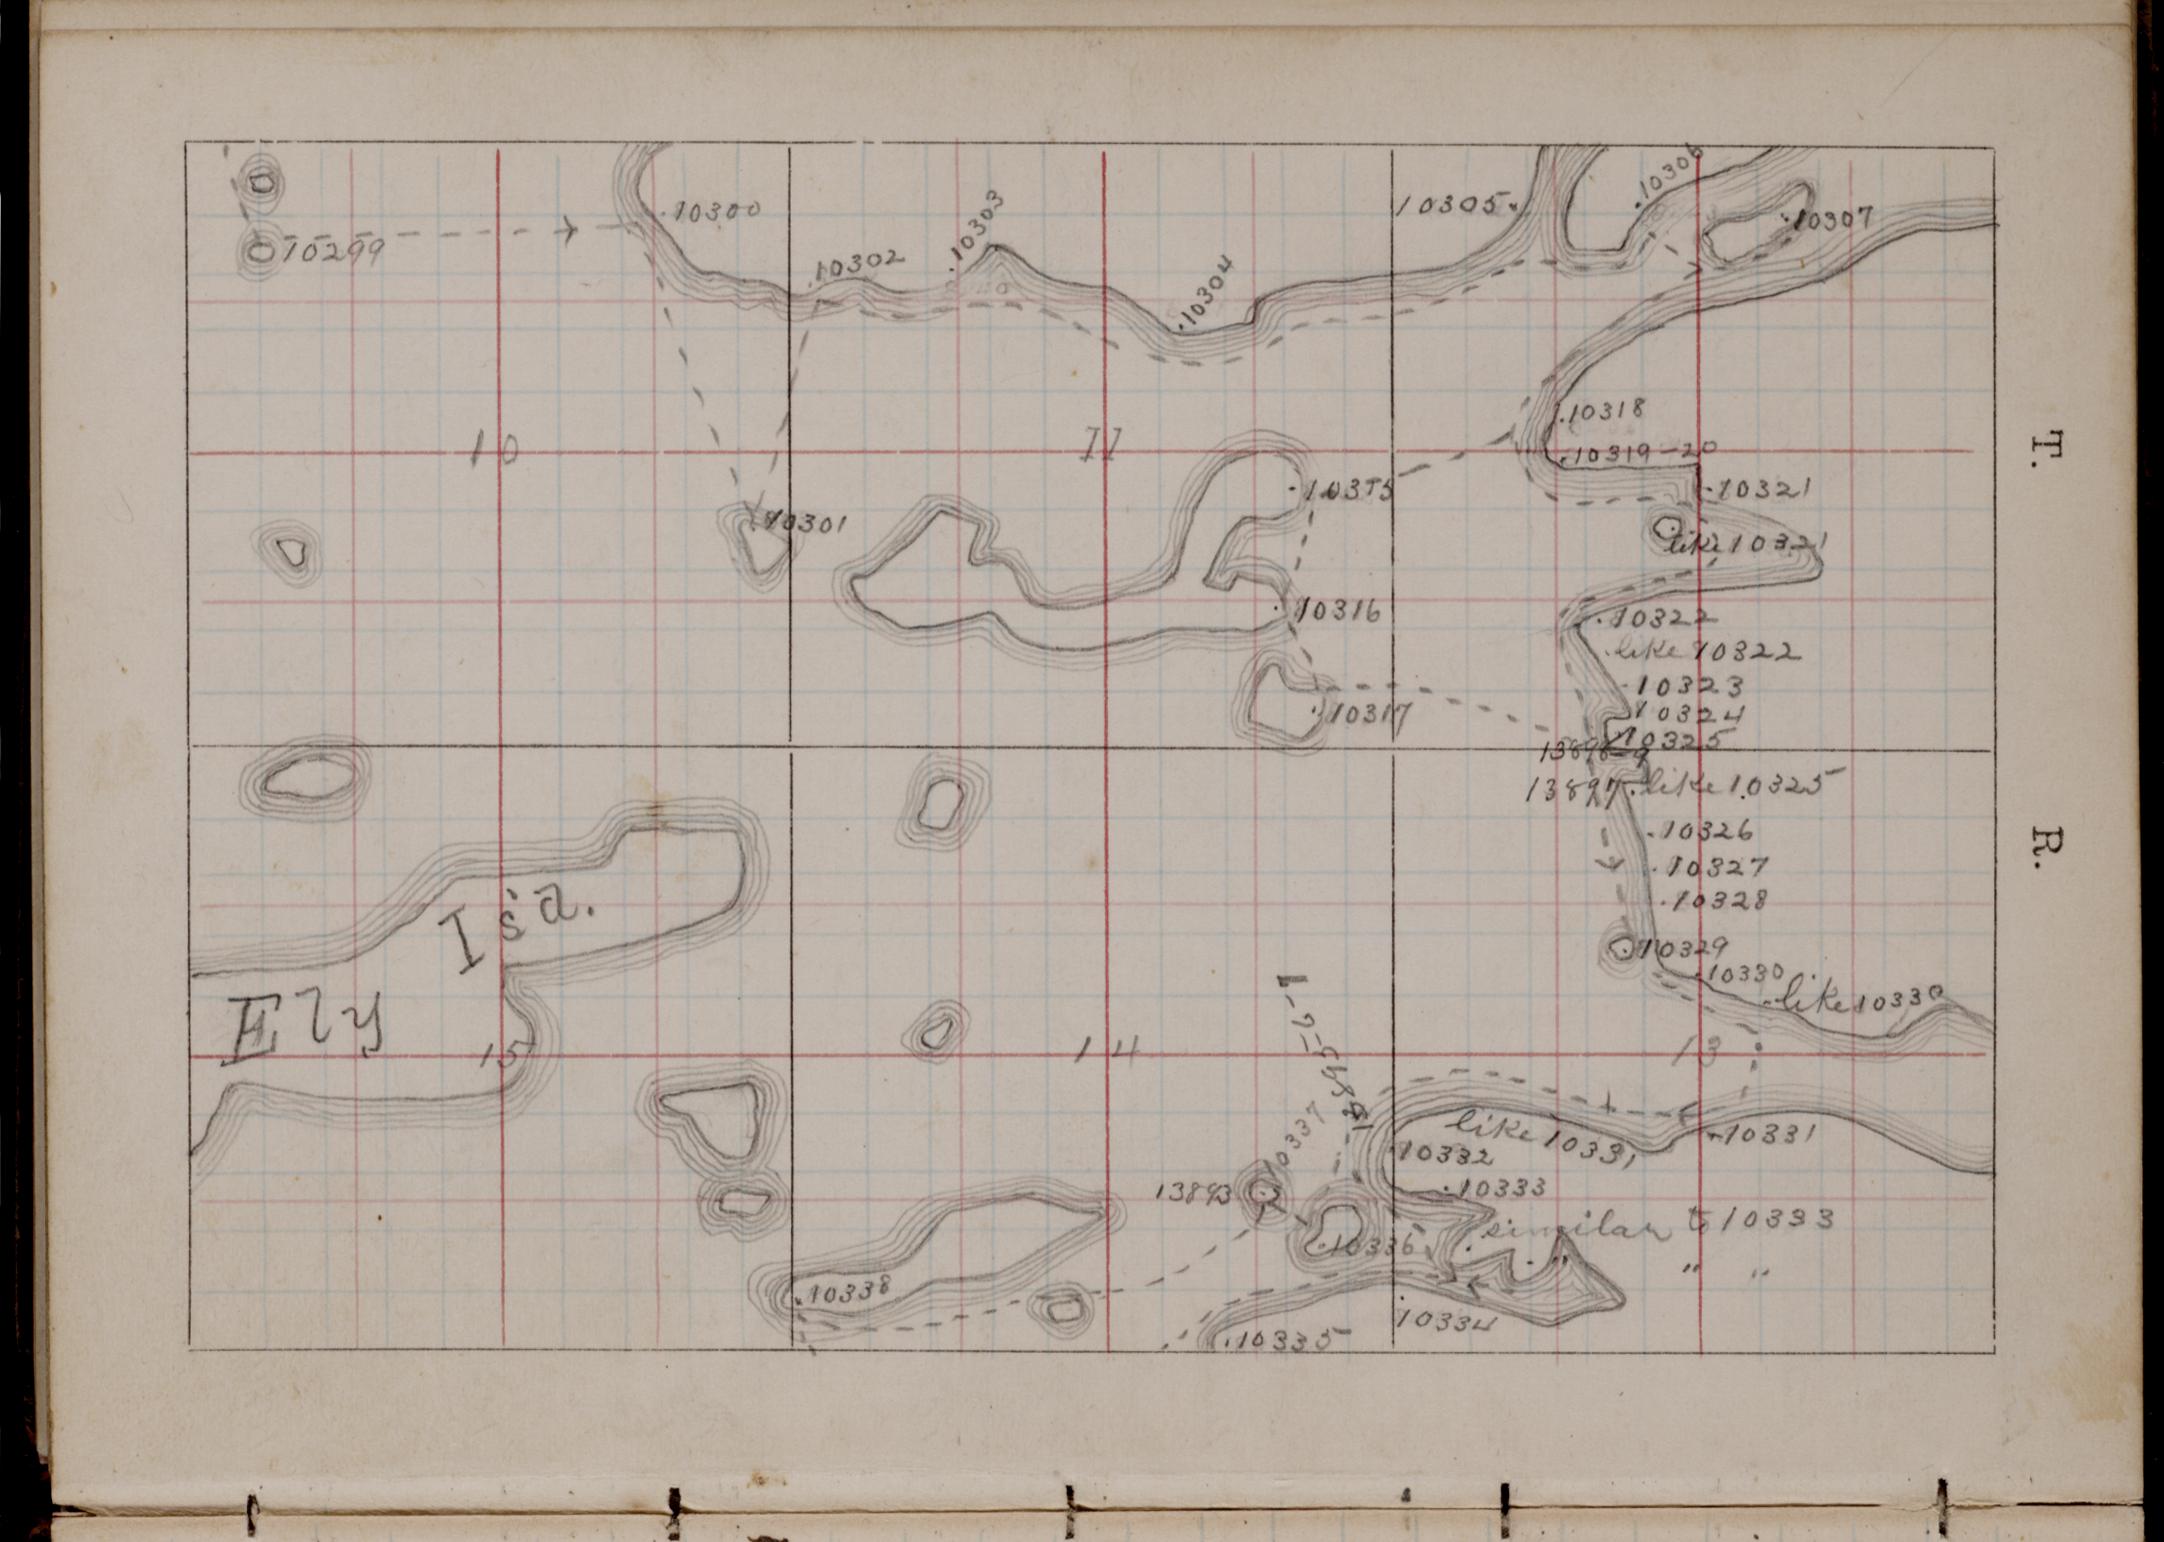 10299
10300
10302
.10303
.10304
10305.
.10306
.10307
10
11
.10318
.10319-20
10321
like 10321
10301
10316
10317
.10322
.like 10322
10323
10324
10325
13897 .like 10325
.10326
.10327
.10328
10329
.10330
like 10330
Ely Isd.
15
14
13
10337
13893
like 10331
10331
10332
.10333
similar to 10333
" "
.10336
.10338
10334
.10335
T.
R.